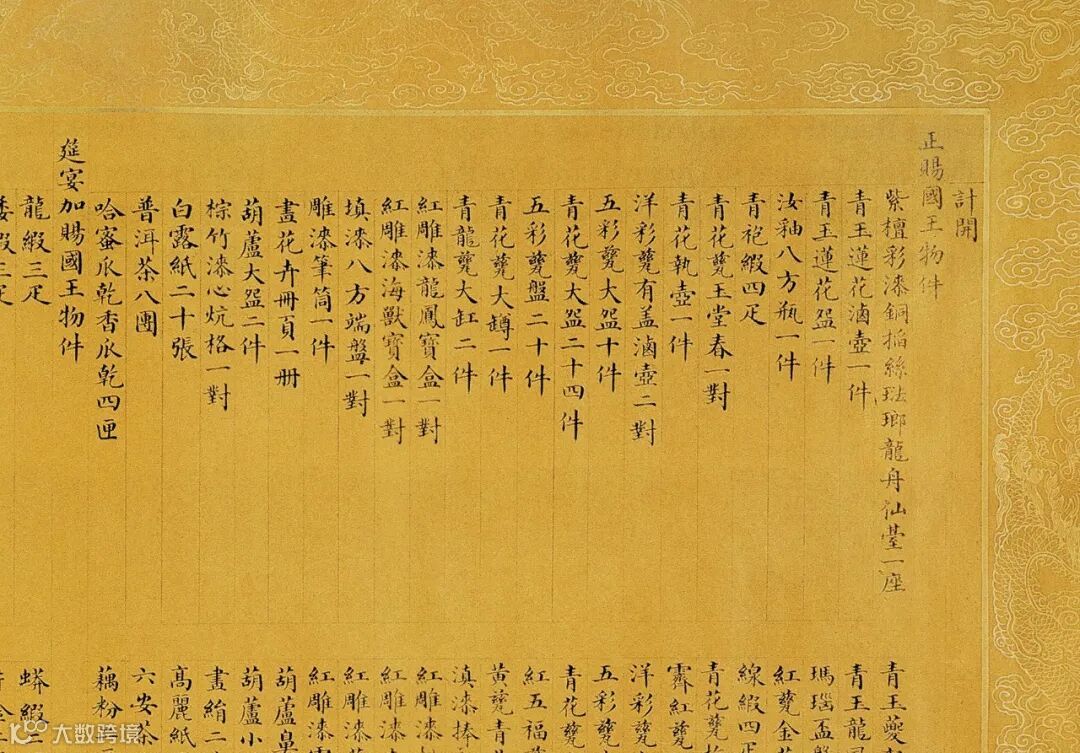 計開
正賜國王物件
紫檀彩漆銅掐絲琺瑯龍舟仙臺一座
青玉
青玉蓮花滷壺一件
青玉龍
青玉蓮花盌一件
瑪瑙盃盤
汝釉八方瓶一件
紅甆金
青袍緞四疋
線緞四疋
青花甆玉堂春一對
青花甆
青花執壺一件
霽紅甆
洋彩甆有盖滷壺二對
洋彩甆
五彩甆大盌十件
五彩甆
青花甆大盌二十四件
青花甆
五彩甆盤二十件
紅五福
青花甆大罇一件
黃甆青
青龍甆大缸二件
滇漆捧
紅雕漆龍鳳寶盒一對
紅雕漆
紅雕漆海獸寶盒一對
紅雕漆
填漆八方端盤一對
紅雕漆
雕漆筆筒一件
紅雕漆
畫花卉冊頁一册
葫蘆
葫蘆大盌二件
葫蘆小
棕竹漆心炕格一對
畫絹二
白露紙二十張
高麗紙
普洱茶八團
六安茶
哈蜜瓜乾香瓜乾四匣
藕粉
筵宴加賜國王物件
龍緞三疋
蟒緞
倭緞三疋
大数跨境